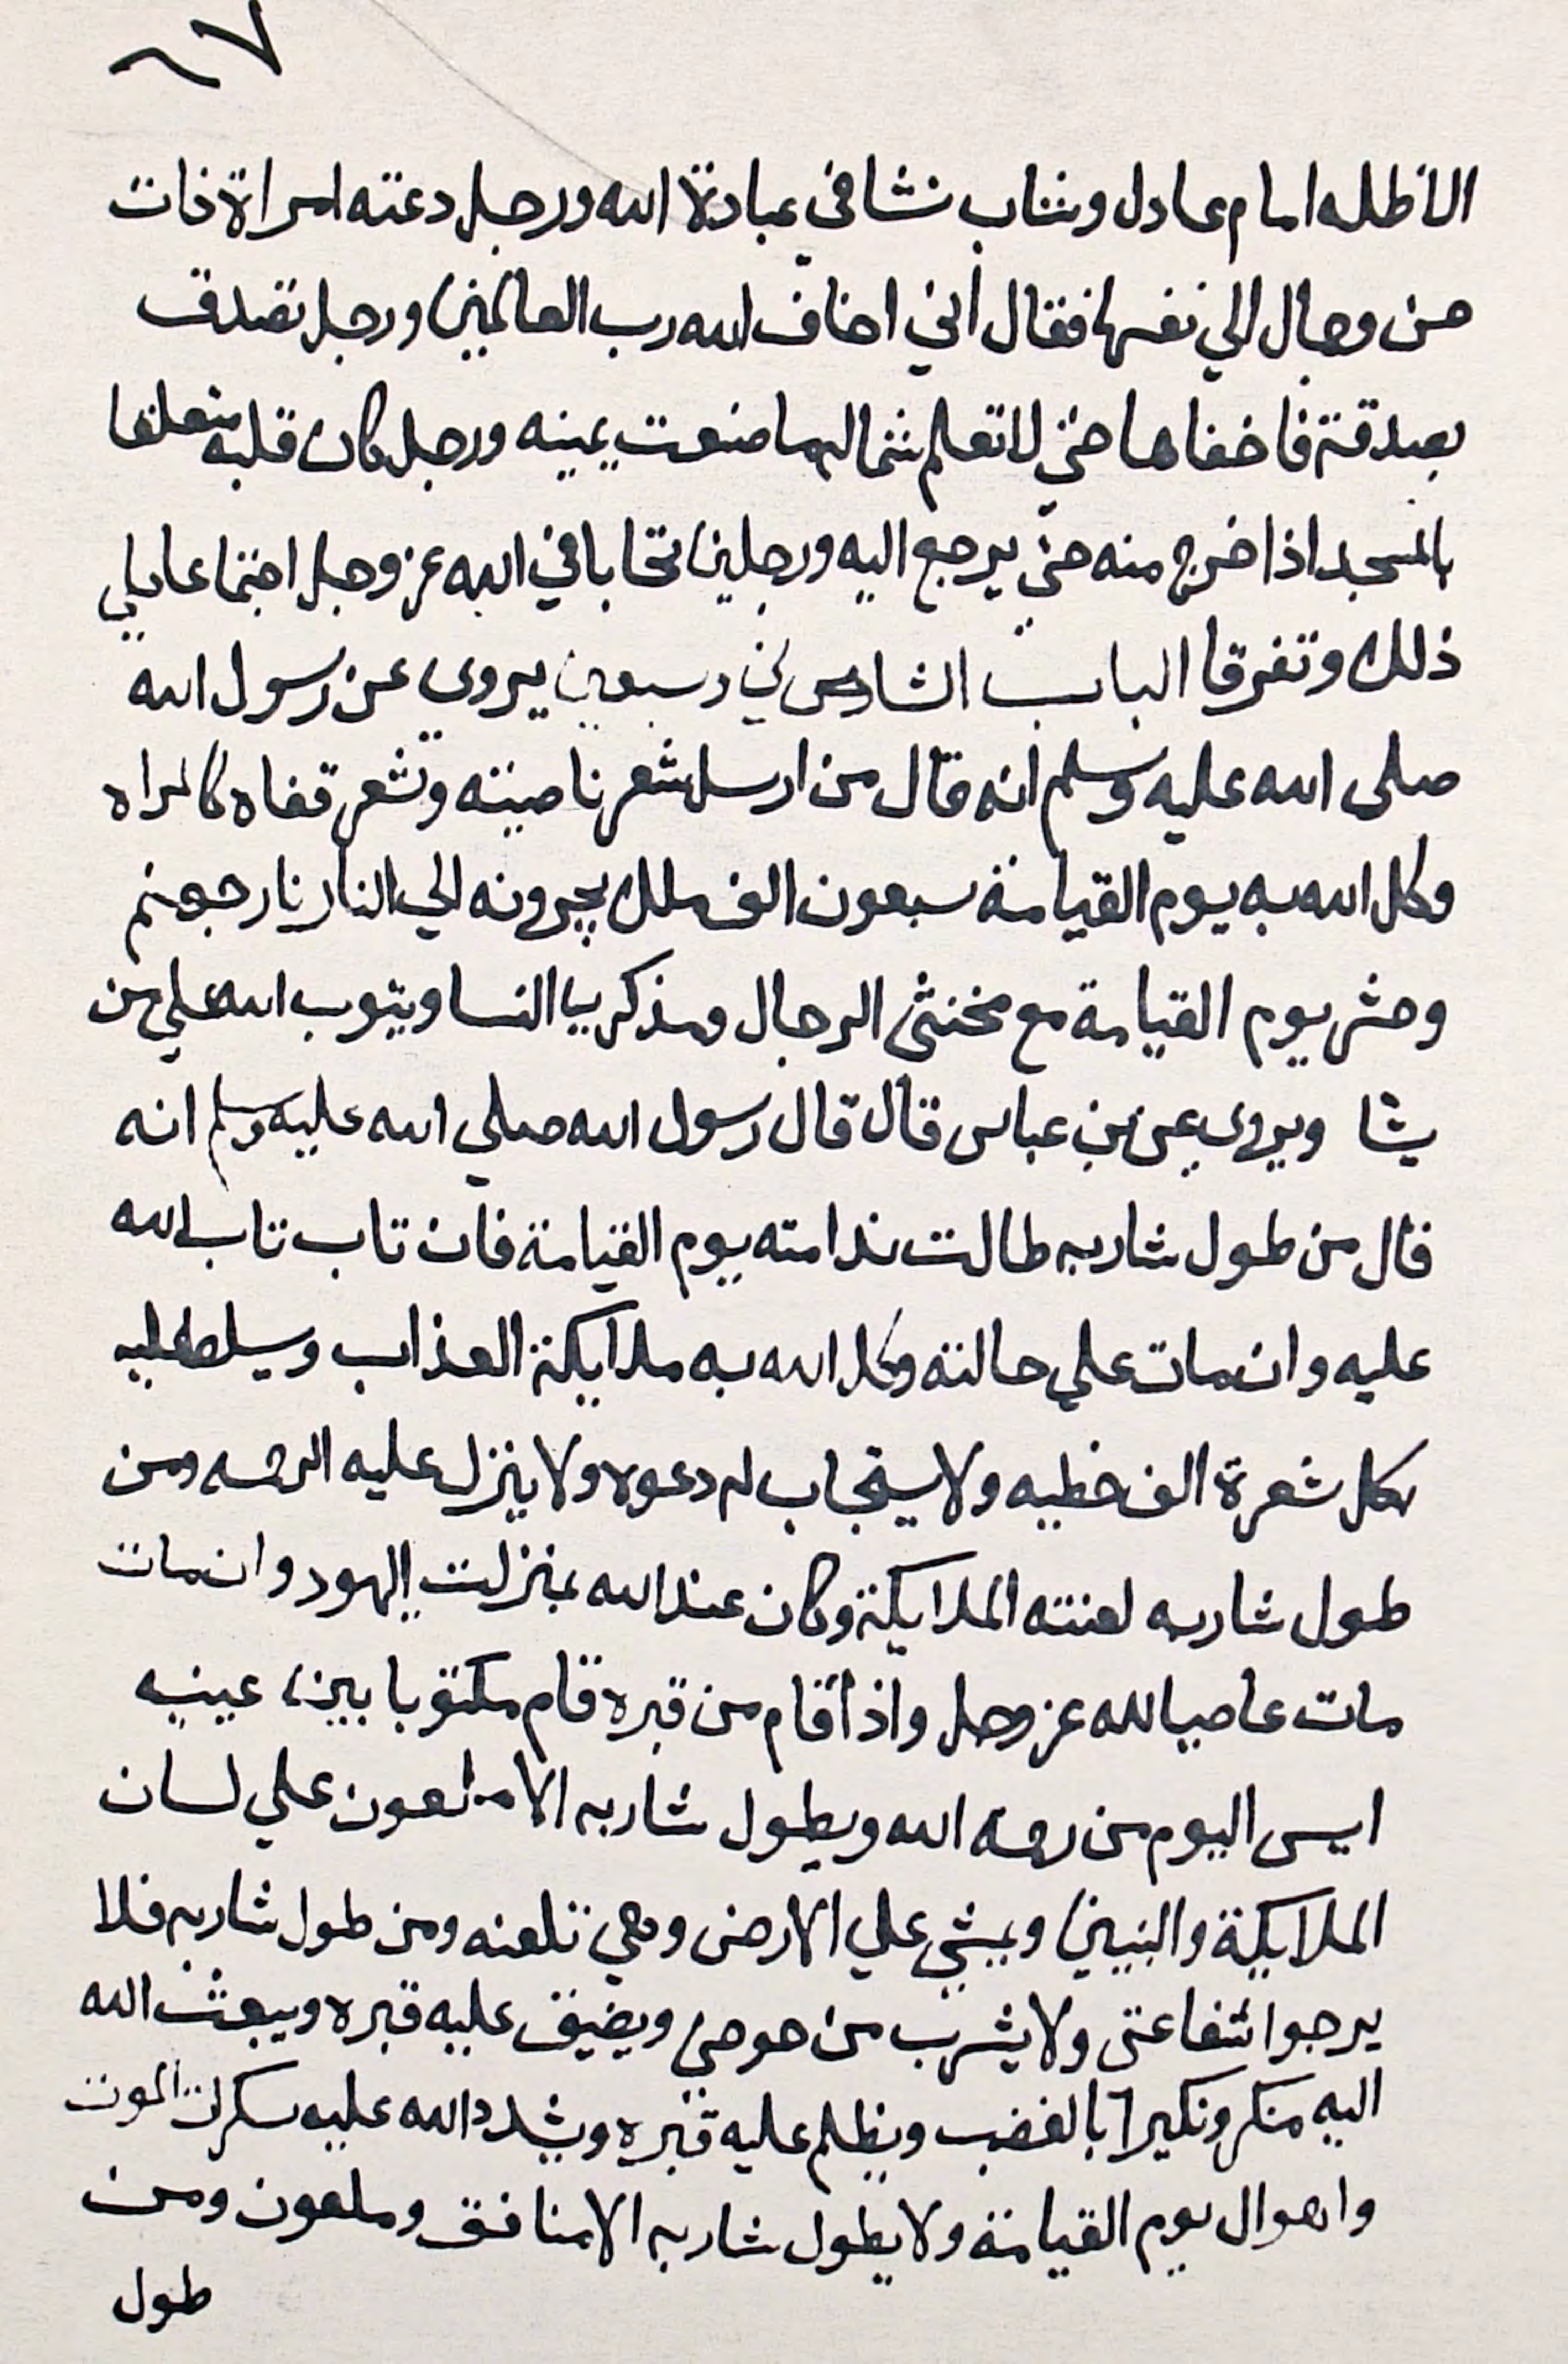 ٦٧
الا ظله امام عادل وشاب نشا في عبادة الله ورجل دعته امراة ذات
حسن وجمال الي نفسها فقال أني اخاف الله رب العالمين ورجل تصدق
بصدقة فاخفاها حتي لا تعلم شماله ما صنعت يمينه ورجل كان قلبه متعلقا
بالمسجد اذا خرج منه حتي يرجع اليه ورجلين تحابا في الله عز وجل اجتماعا علي
ذلك وتفرقا الباب السادس وسبعين يروي عن رسول الله
صلى الله عليه وسلم انه قال من ارسل شعر ناصيته وشعر قفاه كالمراه
وكل الله به يوم القيامة سبعون الف ملك يجرونه الي النار نار جهنم
وحشر يوم القيامة مع مخنثي الرجال ومذكريا النسا ويتوب الله علي من
يشا ويروي عن بن عباس قال قال رسول الله صلي الله عليه وسلم انه
قال من طول شاربه طالت ندامته يوم القيامة فان تاب تاب الله
عليه وان مات علي حالته وكل الله به ملايكة العذاب وسيلط عليه
بكل شعرة الف خطيه ولا يستجاب له دعوه ولا ينزل عليه الرحمه ومن
طول شاربه لعنته الملايكة وكان عند الله بمنزلت اليهود وان مات
مات عاصيا لله عز وجل واذا قام من قبره قام مكتوبا بين عينيه
ايس اليوم من رحمة الله ويطول شاربه الا ملعون علي لسان
الملايكة والنبيين ويمشي علي الارض وهي تلعنه ومن طول شاربه فلا
يرجوا شفاعتي ولا يشرب من حوضي ويضيق عليه قبره ويبعث الله
اليه منكر ونكيرا بالغضب ويظلم عليه قبره ويشدد الله عليه سكرات الموت
واهوال يوم القيامة ولا يطول شاربه الا منافق وملعون ومن
طول